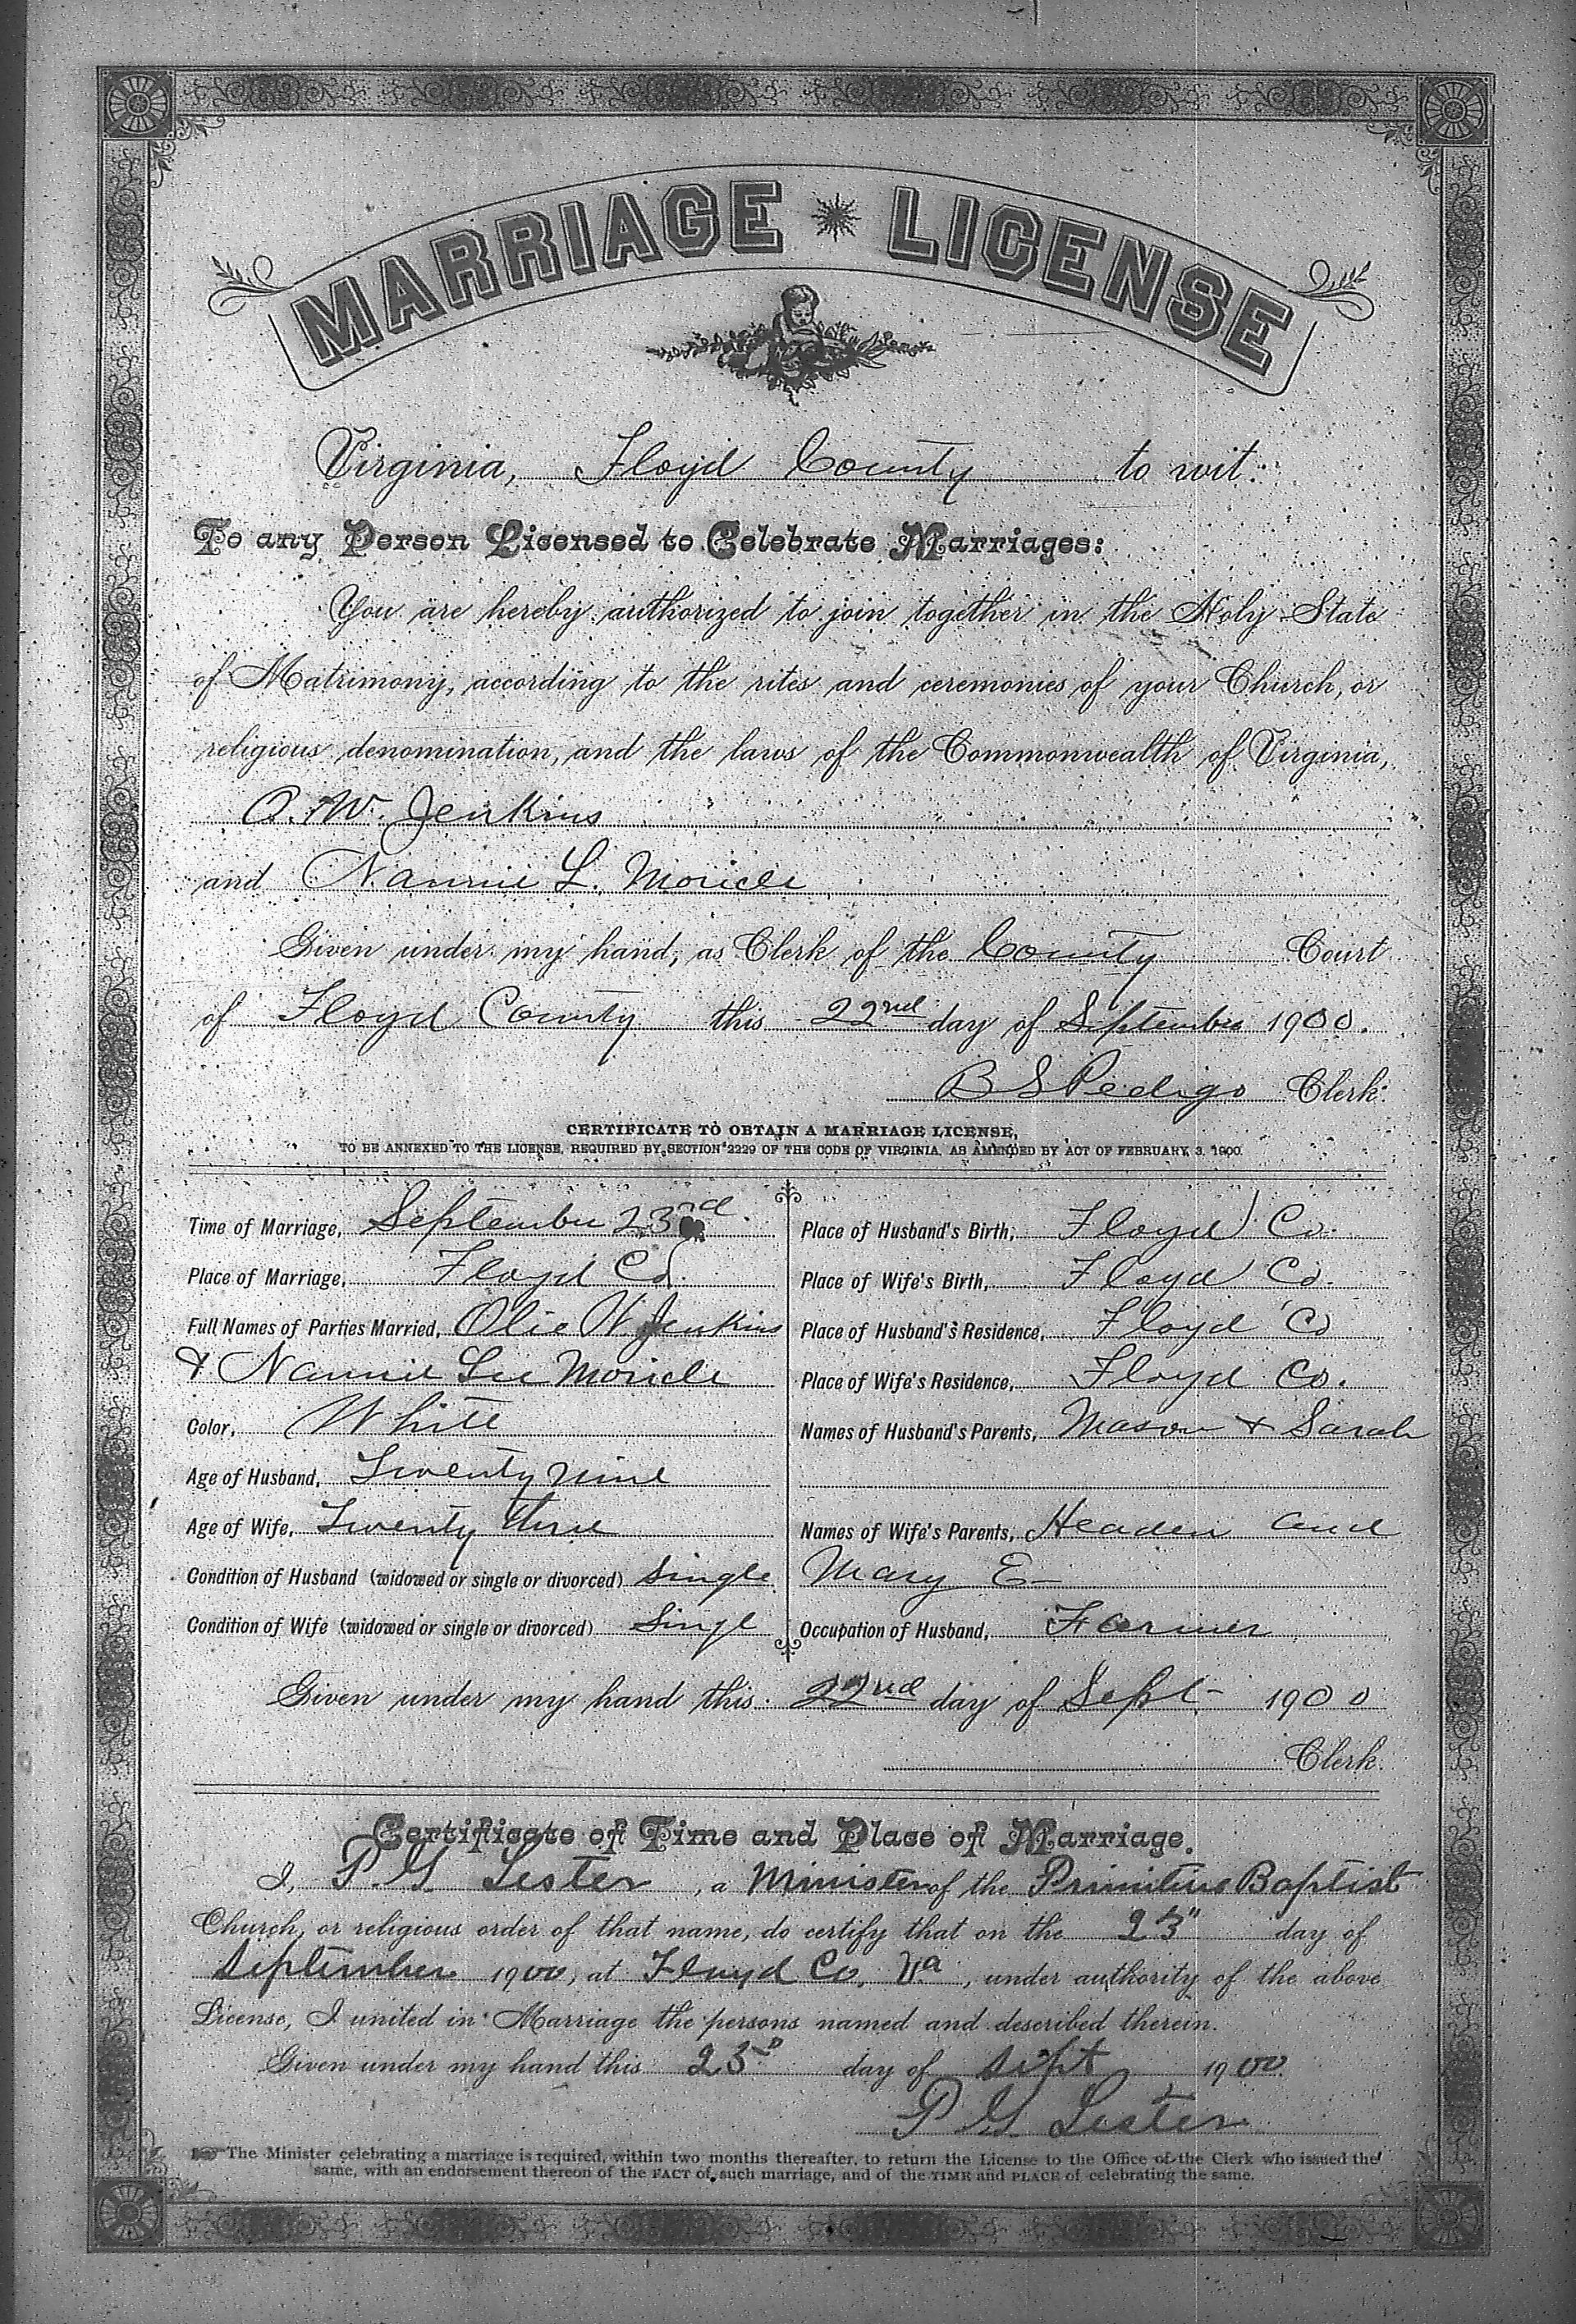 MARRIAGE LICENSE
Virginia, Floyd County to wit:
To any Person Licensed to Celebrate Marriages:
You are hereby authorized to join together in the Holy State
of Matrimony, according to the rites and ceremonies of your Church, or
religious denomination, and the laws of the Commonwealth of Virginia,
O. W. Jenkins
and Nannie L. Moricle
Given under my hand, as Clerk of the County Court
of Floyd County this 22nd day of September 1900.
B S Pedigo Clerk.
CERTIFICATE TO OBTAIN A MARRIAGE LICENSE,
TO BE ANNEXED TO THE LICENSE, REQUIRED BY SECTION 2229 OF THE CODE OF VIRGINIA, AS AMENDED BY ACT OF FEBRUARY 3, 1900.
Time of Marriage, September 23rd.
Place of Marriage, Floyd Co.
Full Names of Parties Married, Olie W. Jenkins
& Nannie Lee Moricle
Color, White
Age of Husband, Twenty nine
Age of Wife, Twenty three
Condition of Husband (widowed or single or divorced) Single
Condition of Wife (widowed or single or divorced) Singl
Place of Husband's Birth, Floyd Co.
Place of Wife's Birth, Floyd Co.
Place of Husband's Residence, Floyd Co
Place of Wife's Residence, Floyd Co.
Names of Husband's Parents, Mason & Sarah
Names of Wife's Parents, Headen and
Mary E
Occupation of Husband, Farmer
Given under my hand this 22nd day of Sept 1900
Clerk.
Certificate of Time and Place of Marriage.
I, P. G. Lester, a Minister of the Primitive Baptist
Church, or religious order of that name, do certify that on the 23" day of
September 1900, at Floyd Co, Va, under authority of the above
License, I united in Marriage the persons named and described therein.
Given under my hand this 23D day of Sept 1900.
P G Lester
The Minister celebrating a marriage is required, within two months thereafter, to return the License to the Office of the Clerk who issued the
same, with an endorsement thereon of the FACT of such marriage, and of the TIME and PLACE of celebrating the same.